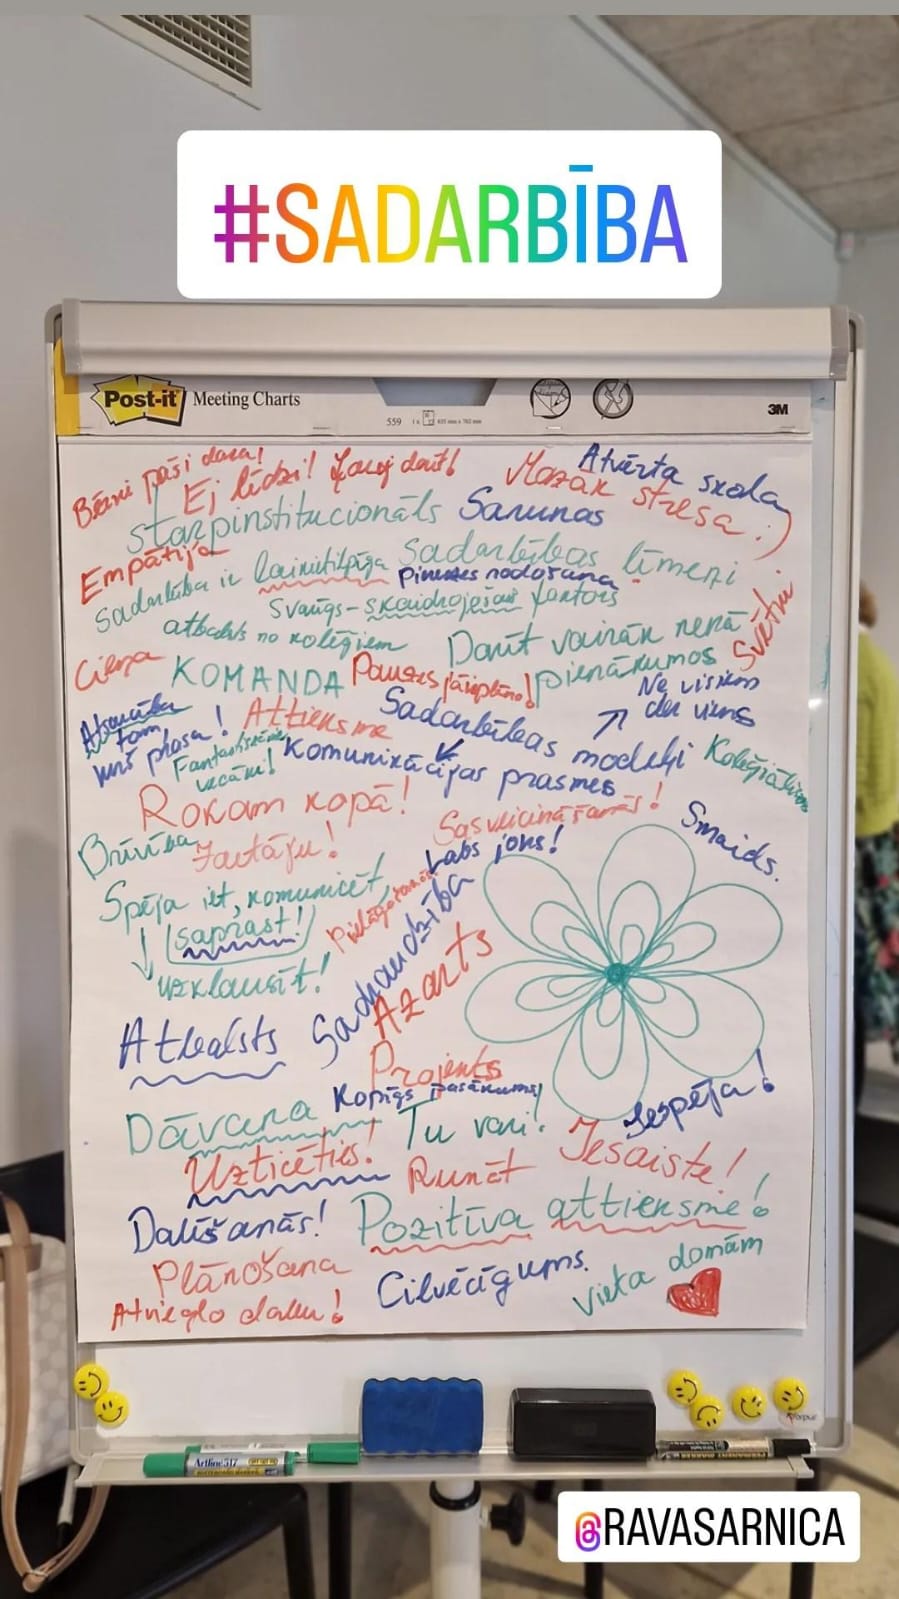 #SADARBĪBA
Post-it Meeting Charts
559
3M
Bērni paši dara!
Ej līdzi! Ļauj darīt!
Atvērta skola
Mazāk stresa :)
starpinstitucionāls Sarunas
Empātija
Sadarbības līmeņi
Sadarbība ir laikietilpīga
Pieredzes nodošana
Svarīgs - skaidrojošais faktors
atbalsts no kolēģiem
Darīt vairāk nekā
pienākumos
Svētki
Cieņa
KOMANDA
Ne visiem
der viens
Atsaucība
tam,
kurš prasa!
Attieksme
Sadarbības modeļi
Fantastiskie
vecāki!
Komunikācijas prasmes
Rokam kopā!
Sasveicināšanās!
Smaids.
Brīvība
Jautāju!
Labs joks!
Spēja iet, komunicēt,
saprast!
Pielāgošanās
uzklausīt!
Sadraudzība
Azarts
Atbalsts
Projekts
Kopīgs pasākums!
Iespēja!
Dāvana
Tu vari!
Uzticēties!
Runāt
Iesaiste!
Dalīšanās!
Pozitīva attieksme!
Plānošana
Cilvēcīgums.
vieta domām
Atvieglo darbu!
Artline 517
@RAVASARNICA